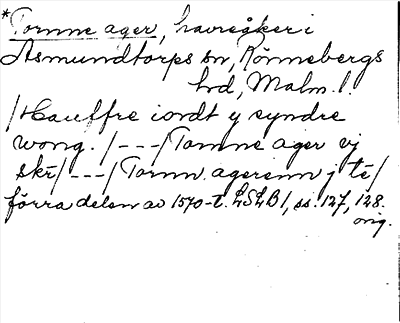 *Tomme ager, havreåker i
Asmundtorps sn, Rönnebergs
hd, Malm. l.
/Hauffre iordt y syndre
wong. /---/ Tomme ager vj
skr/---/ Tomm. agerenn j te/
förra delen av 1570-t. LSLB 1, ss. 127, 128.
orig.